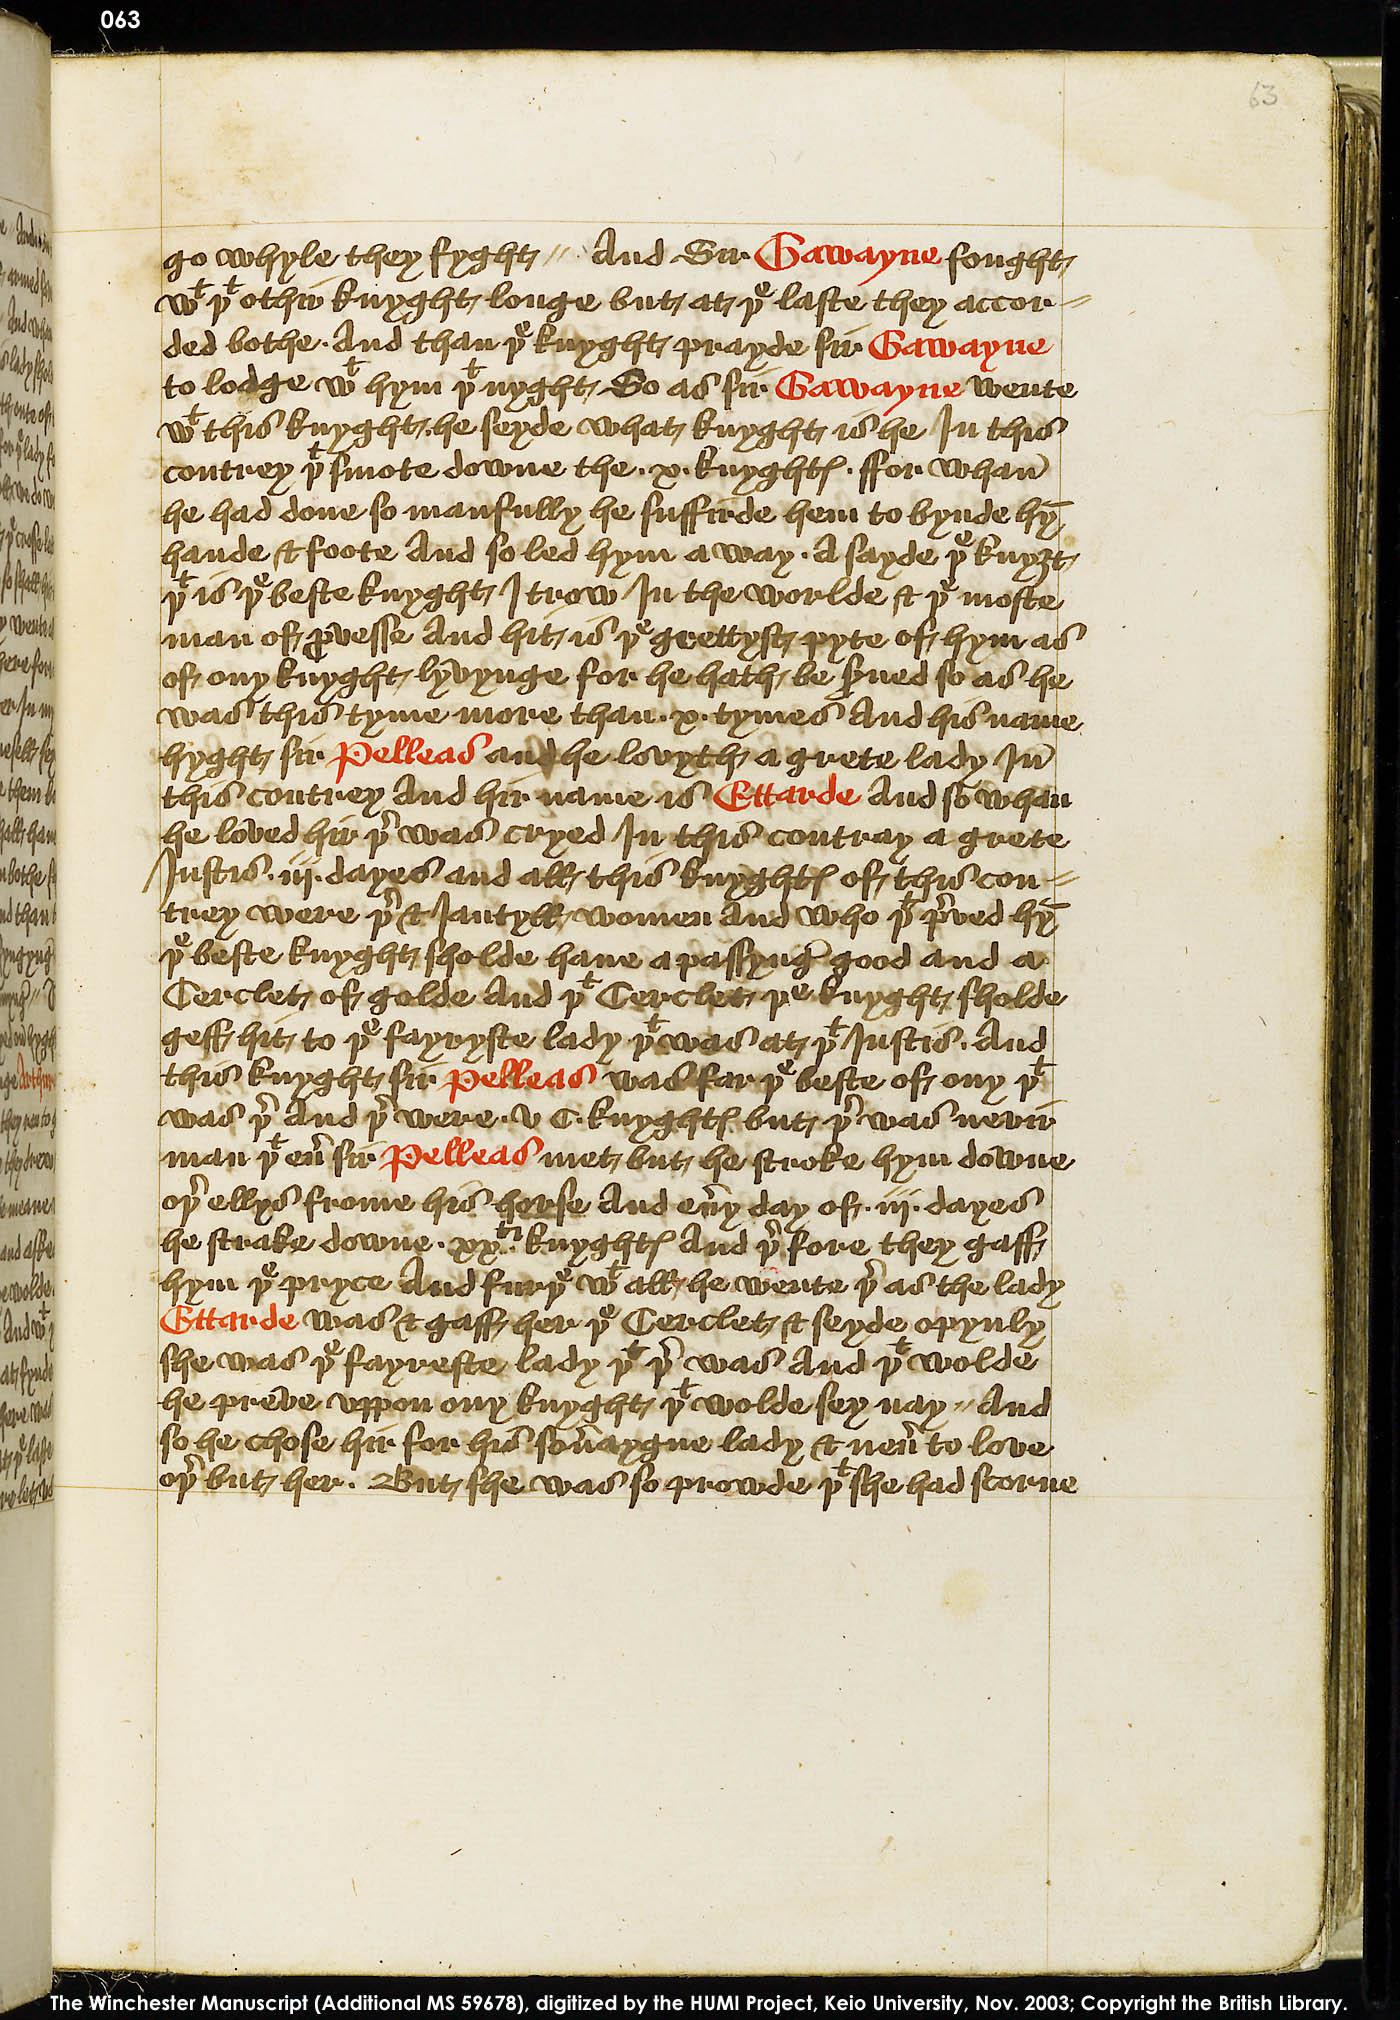 063
63
go whyle they fyght // And Sir Gawayne fought
wᵗ þᵗ othir knyght longe but at þᵉ laste they accor-
ded bothe. And than þᵉ knyght prayde sir Gawayne
to lodge wᵗ hym þᵗ nyght So as sir Gawayne wente
wᵗ this knyght. he seyde what knyght is he In this
contrey þᵗ smote downe the .x. knyghtꝭ. ffor whan̄
he had done so manfully he suffirde hem to bynde hȳ
hande & foote And so led hym a way. A sayde þᵉ knyȝt
þᵗ is þᵉ beste knyght I trow In the worlde & þᵉ moste
man of ꝓvesse And hit is þᵉ grettyst pyte of hym as
of ony knyght lyvynge for he hath be s̱ued so as he
was this tyme more than .x. tymes And his name
hyght sir Pelleas and he lovyth a grete lady In̄
this contrey And hir name is Ettarde And so whan
he loved hir þʳ was cryed In this contray a grete
Justis .iij. dayes and all this knyghtꝭ of this con-
trey were þʳ & Jantyll women And who þᵗ pʳved hȳ
þᵉ beste knyght sholde have a passyng good and a
Cerclet of golde And þᵗ Cerclet þᵉ knyght sholde
geff hit to þᵉ fayryste lady þᵗ was at þᵗ Justis. And
this knyght sir Pelleas was far þᵉ beste of ony þᵗ
was þʳ And þʳ were .v C. knyghtꝭ but þʳ was nevir
man þᵗ eu̓ sir Pelleas met but he stroke hym downe
oþʳ ellys frome his horse And eu̓y day of .iij. dayes
he strake downe .xxᵗⁱ. knyghtꝭ And þʳ fore they gaff
hym þᵉ pryce And furþᵉ wᵗ all he wente þʳ as the lady
Ettarde was & gaff her þᵉ Cerclet & seyde opynly
she was þᵉ fayreste lady þᵗ þʳ was And þᵗ wolde
he preve vppon ony knyght þᵗ wolde sey nay // And
so he chose hir for his sou̓aygne lady & neu̓ to love
oþʳ but her. But she was so prowde þᵗ she had scorne
The Winchester Manuscript (Additional MS 59678), digitized by the HUMI Project, Keio University, Nov. 2003; Copyright the British Library.